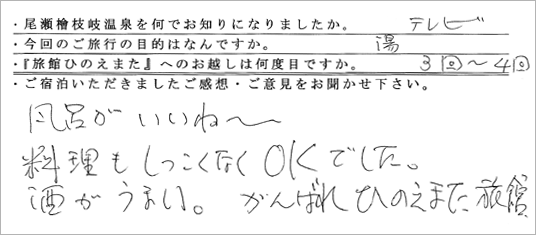 ・尾瀬檜枝岐温泉を何でお知りになりましたか。 テレビ
・今回のご旅行の目的はなんですか。 湯
・『旅館ひのえまた』へのお越しは何度目ですか。 3回〜4回
・ご宿泊いただきましたご感想・ご意見をお聞かせ下さい。
風呂がいいね〜
料理もしつこくなくOKでした。
酒がうまい。 がんばれひのえまた旅館